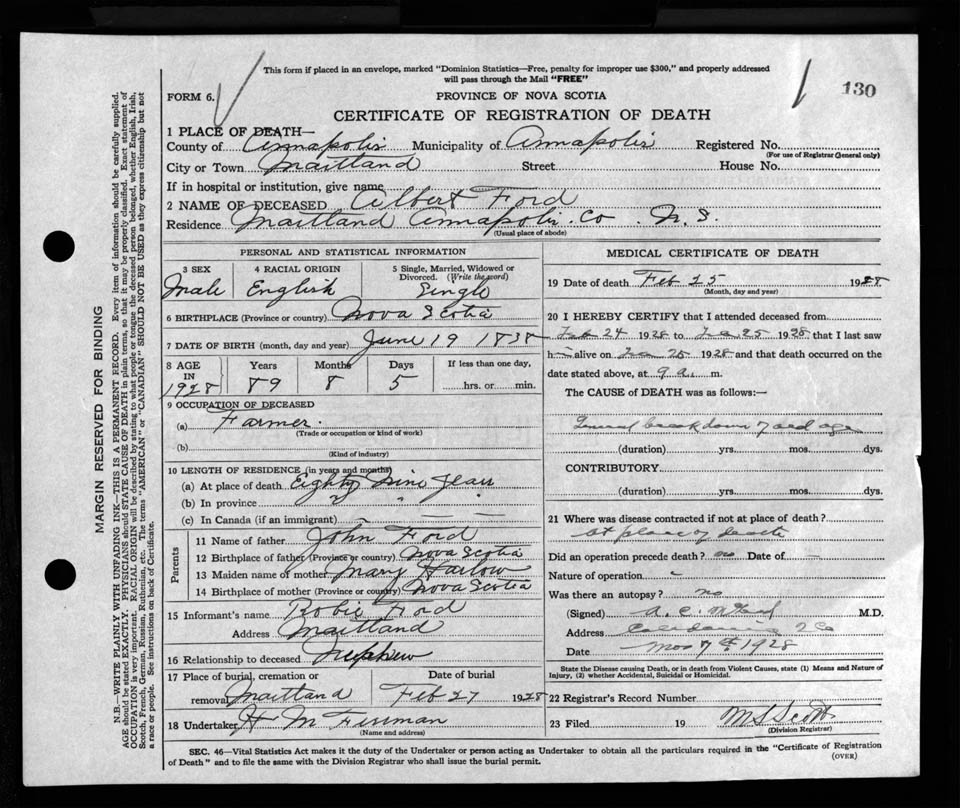 This form if placed in an envelope, marked "Dominion Statistics—Free, penalty for improper use $300," and properly addressed
will pass through the Mail "FREE"
130
FORM 6.
PROVINCE OF NOVA SCOTIA
CERTIFICATE OF REGISTRATION OF DEATH
1 PLACE OF DEATH—
County of Annapolis Municipality of Annapolis Registered No.
(For use of Registrar General only)
City or Town Maitland Street House No.
If in hospital or institution, give name
2 NAME OF DECEASED Albert Ford
Residence Maitland Annapolis Co. N. S.
(Usual place of abode)
PERSONAL AND STATISTICAL INFORMATION
3 SEX 4 RACIAL ORIGIN 5 Single, Married, Widowed or
Divorced. (Write the word)
Male English Single
6 BIRTHPLACE (Province or country) Nova Scotia
7 DATE OF BIRTH (month, day and year) June 19 1838
8 AGE Years Months Days If less than one day,
IN
1928 89 8 5 hrs. or min.
9 OCCUPATION OF DECEASED
(a) Farmer.
(Trade or occupation or kind of work)
(b)
(Kind of industry)
10 LENGTH OF RESIDENCE (in years and months)
(a) At place of death Eighty Nine Years
(b) In province " " "
(c) In Canada (if an immigrant) —
Parents
11 Name of father John Ford
12 Birthplace of father (Province or country) Nova Scotia
13 Maiden name of mother Mary Harlow
14 Birthplace of mother (Province or country) Nova Scotia
15 Informant's name Robie Ford
Address Maitland
16 Relationship to deceased Nephew
17 Place of burial, cremation or Date of burial
removal Maitland Feb 27 1928
18 Undertaker H M
(Name and address)
MEDICAL CERTIFICATE OF DEATH
19 Date of death Feb 25 1928
(Month, day and year)
20 I HEREBY CERTIFY that I attended deceased from
Feb 24 1928 to Feb 25 1928 that I last saw
h alive on Feb 25 1928 and that death occurred on
the date stated above, at 9 a. m.
The CAUSE OF DEATH was as follows:
General breakdown of old age
(duration) yrs. mos. dys.
CONTRIBUTORY
(duration) yrs. mos. dys.
21 Where was disease contracted if not at place of death?
at place of death
Did an operation precede death? no Date of —
Nature of operation -
Was there an autopsy? no
(Signed) A. C. M.D.
Address Caledonia
Date Mar 7th 1928
State the Disease causing Death, or in death from Violent Causes, state (1) Means and Nature of
Injury, (2) whether Accidental, Suicidal or Homicidal.
22 Registrar's Record Number
23 Filed 19 M S Scott
(Division Registrar)
SEC. 46—Vital Statistics Act makes it the duty of the Undertaker or person acting as Undertaker to obtain all the particulars required in the "Certificate of Registration
of Death" and to file the same with the Division Registrar who shall issue the burial permit. (OVER)
MARGIN RESERVED FOR BINDING
N.B.—WRITE PLAINLY WITH UNFADING INK—THIS IS A PERMANENT RECORD. Every item of information should be carefully supplied.
AGE should be stated EXACTLY. PHYSICIANS should STATE CAUSE OF DEATH in plain terms, so that it may be properly classified. Exact statement of
OCCUPATION is very important. RACIAL ORIGIN will be described by stating to what people or tongue the deceased person belonged, whether English, Irish,
Scotch, French, German, Russian, Ruthenian, etc. The terms "AMERICAN" or "CANADIAN" SHOULD NOT BE USED as they express citizenship but not
a race or people. See instructions on back of Certificate.